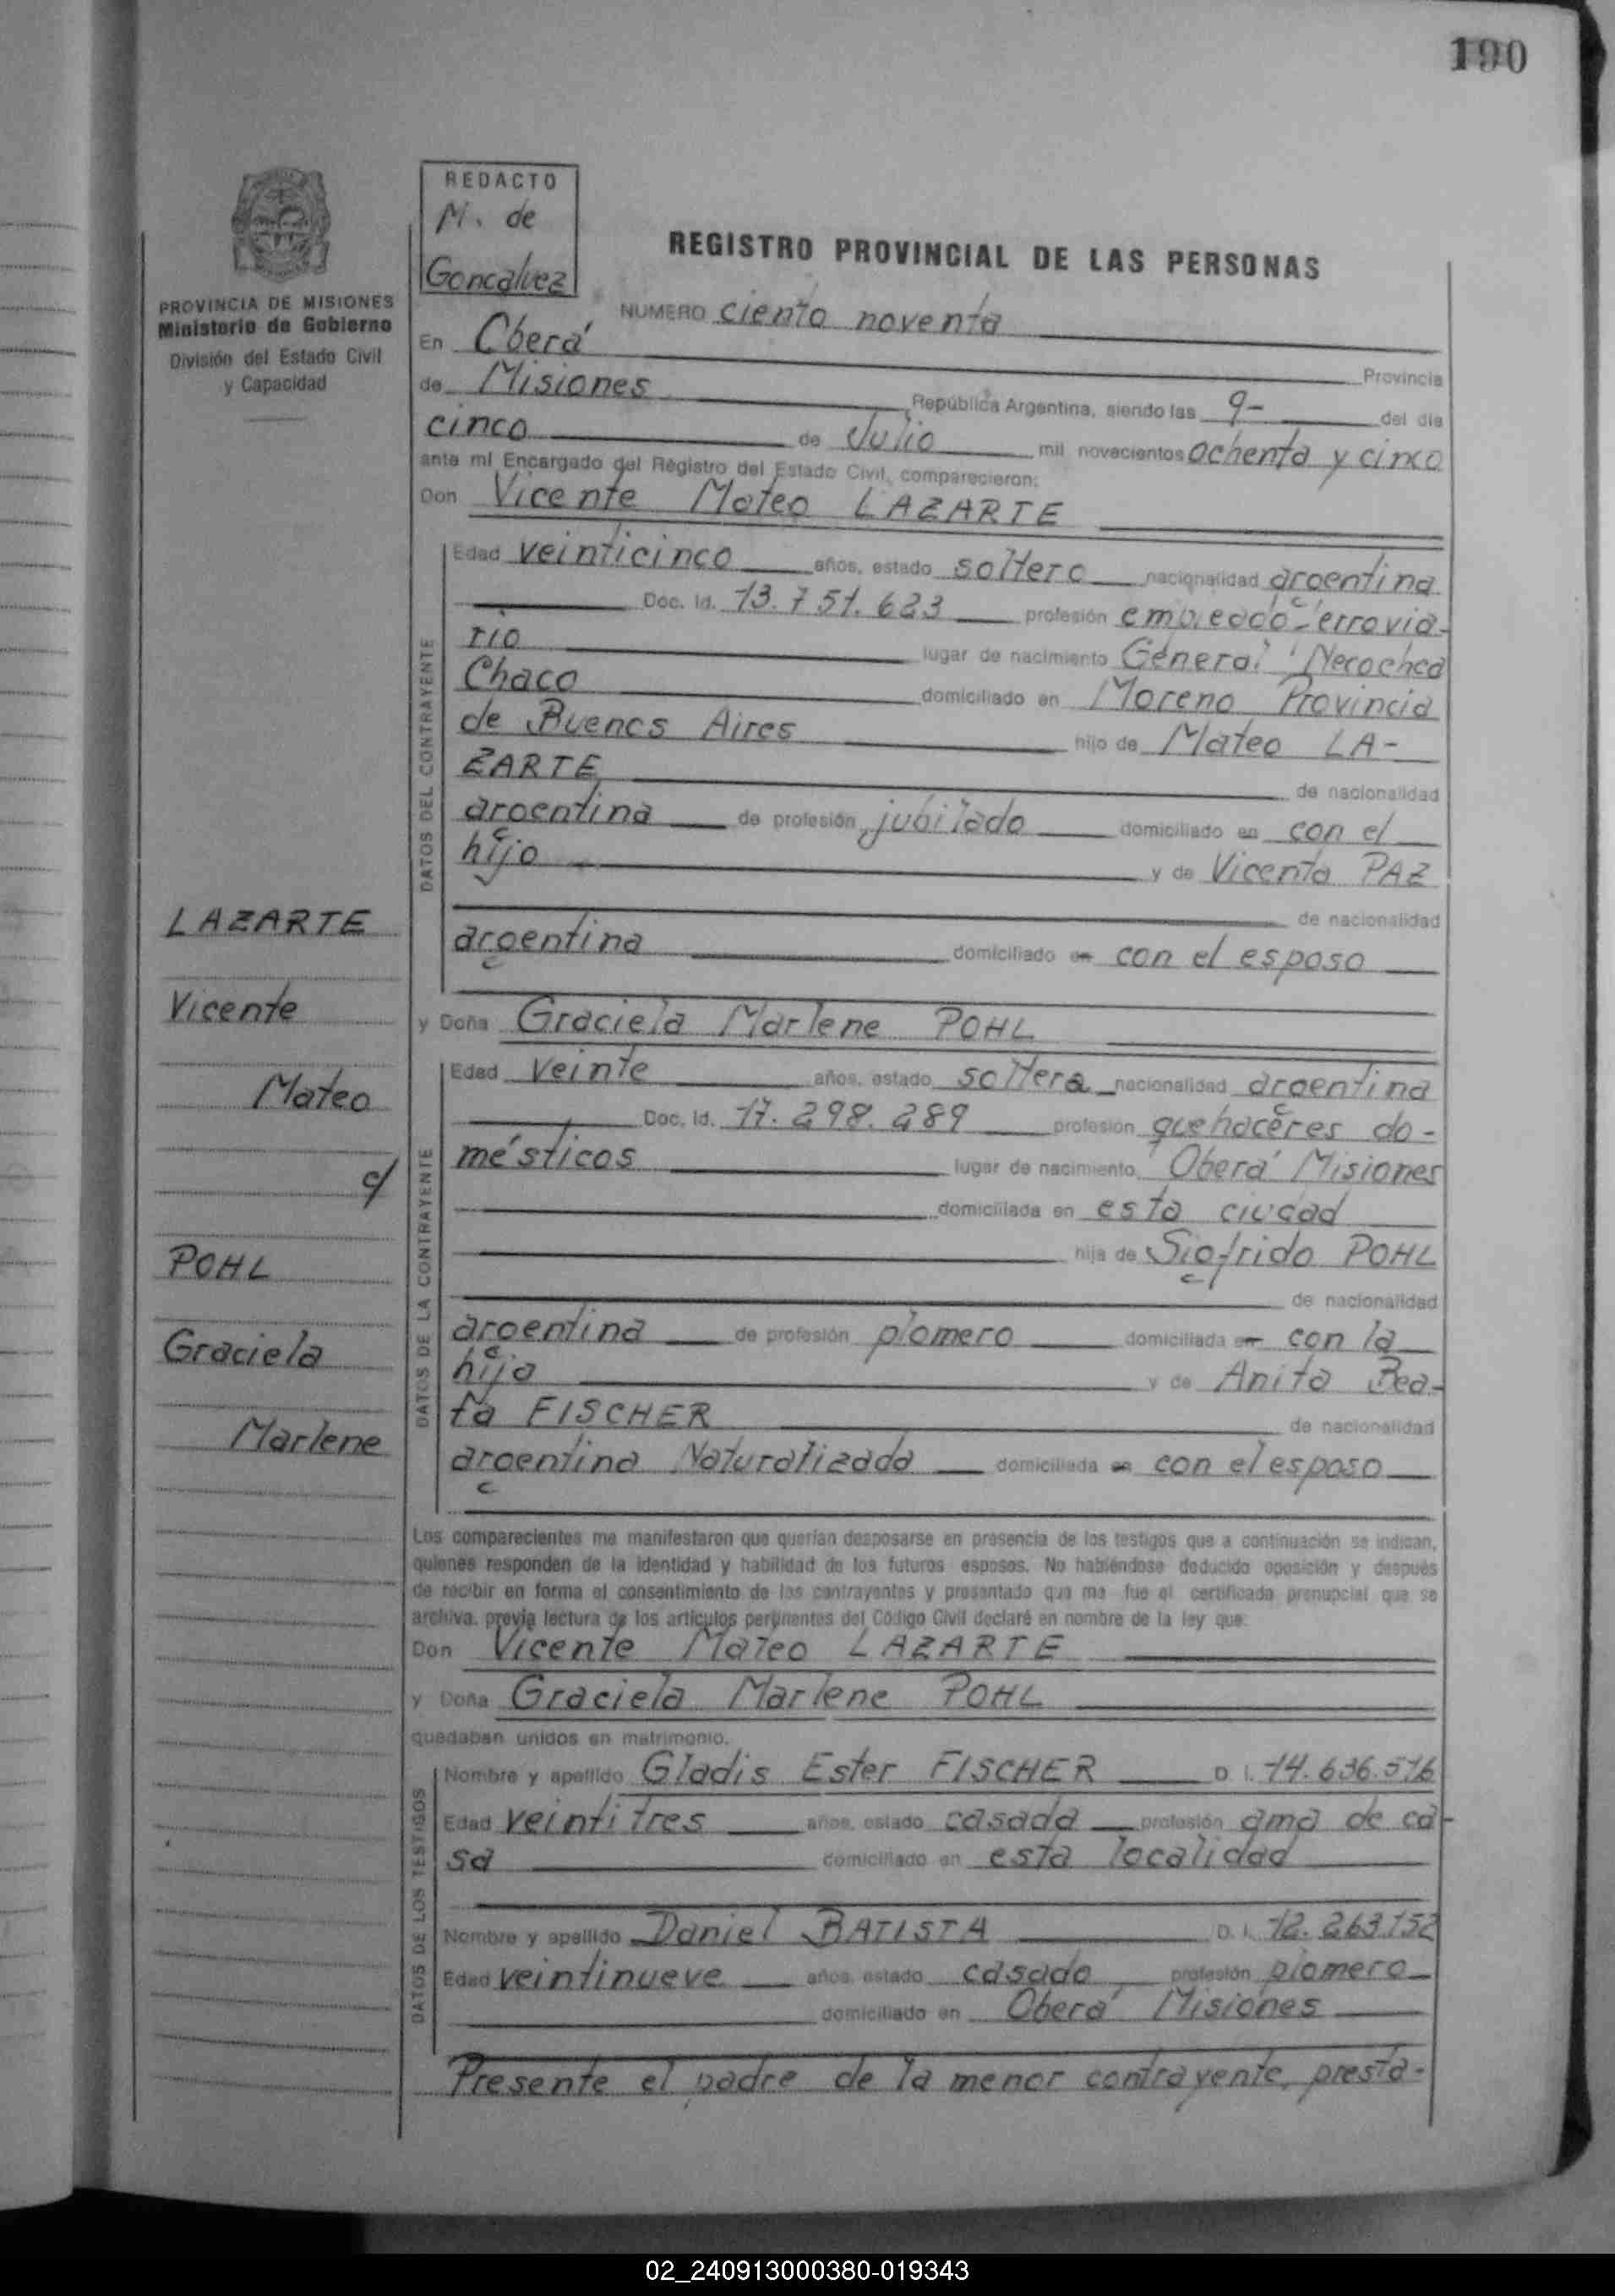 190
REDACTO
M. de
Goncalvez
REGISTRO PROVINCIAL DE LAS PERSONAS
PROVINCIA DE MISIONES
Ministerio de Gobierno
División del Estado Civil
y Capacidad
NUMERO ciento noventa
En Oberá
Provincia
de Misiones República Argentina, siendo las 9- del día
cinco de Julio mil novecientos ochenta y cinco
ante mí Encargado del Registro del Estado Civil, comparecieron:
Don Vicente Mateo LAZARTE
DATOS DEL CONTRAYENTE
Edad veinticinco años, estado soltero nacionalidad argentina
Doc. Id. 13.751.623 profesión empleado ferrovia-
rio lugar de nacimiento General Necochea
Chaco domiciliado en Moreno Provincia
de Buenos Aires hijo de Mateo LA-
ZARTE de nacionalidad
argentina de profesión jubilado domiciliado en con el
hijo y de Vicenta PAZ
de nacionalidad
argentina domiciliado en con el esposo
y Doña Graciela Marlene POHL
DATOS DE LA CONTRAYENTE
Edad veinte años, estado soltera nacionalidad argentina
Doc. Id. 17.298.289 profesión quehaceres do-
mésticos lugar de nacimiento Oberá Misiones
domiciliada en esta ciudad
hija de Sigfrido POHL
de nacionalidad
argentina de profesión plomero domiciliada en con la
hija y de Anita Bea-
ta FISCHER de nacionalidad
argentina Naturalizada domiciliada en con el esposo
LAZARTE
Vicente
Mateo
c/
POHL
Graciela
Marlene
Los comparecientes me manifestaron que querían desposarse en presencia de los testigos que a continuación se indican,
quienes responden de la identidad y habilidad de los futuros esposos. No habiéndose deducido oposición y después
de recibir en forma el consentimiento de los contrayentes y presentado que me fue el certificado prenupcial que se
archiva, previa lectura de los artículos pertinentes del Código Civil declaré en nombre de la ley que:
Don Vicente Mateo LAZARTE
y Doña Graciela Marlene POHL
quedaban unidos en matrimonio.
DATOS DE LOS TESTIGOS
Nombre y apellido Gladis Ester FISCHER D. I. 14.636.516
Edad veintitres años, estado casada profesión ama de ca-
sa domiciliado en esta localidad
Nombre y apellido Daniel BATISTA D. I. 12.263.152
Edad veintinueve años, estado casado profesión plomero
domiciliado en Oberá Misiones
Presente el padre de la menor contrayente, presta-
02_240913000380-019343